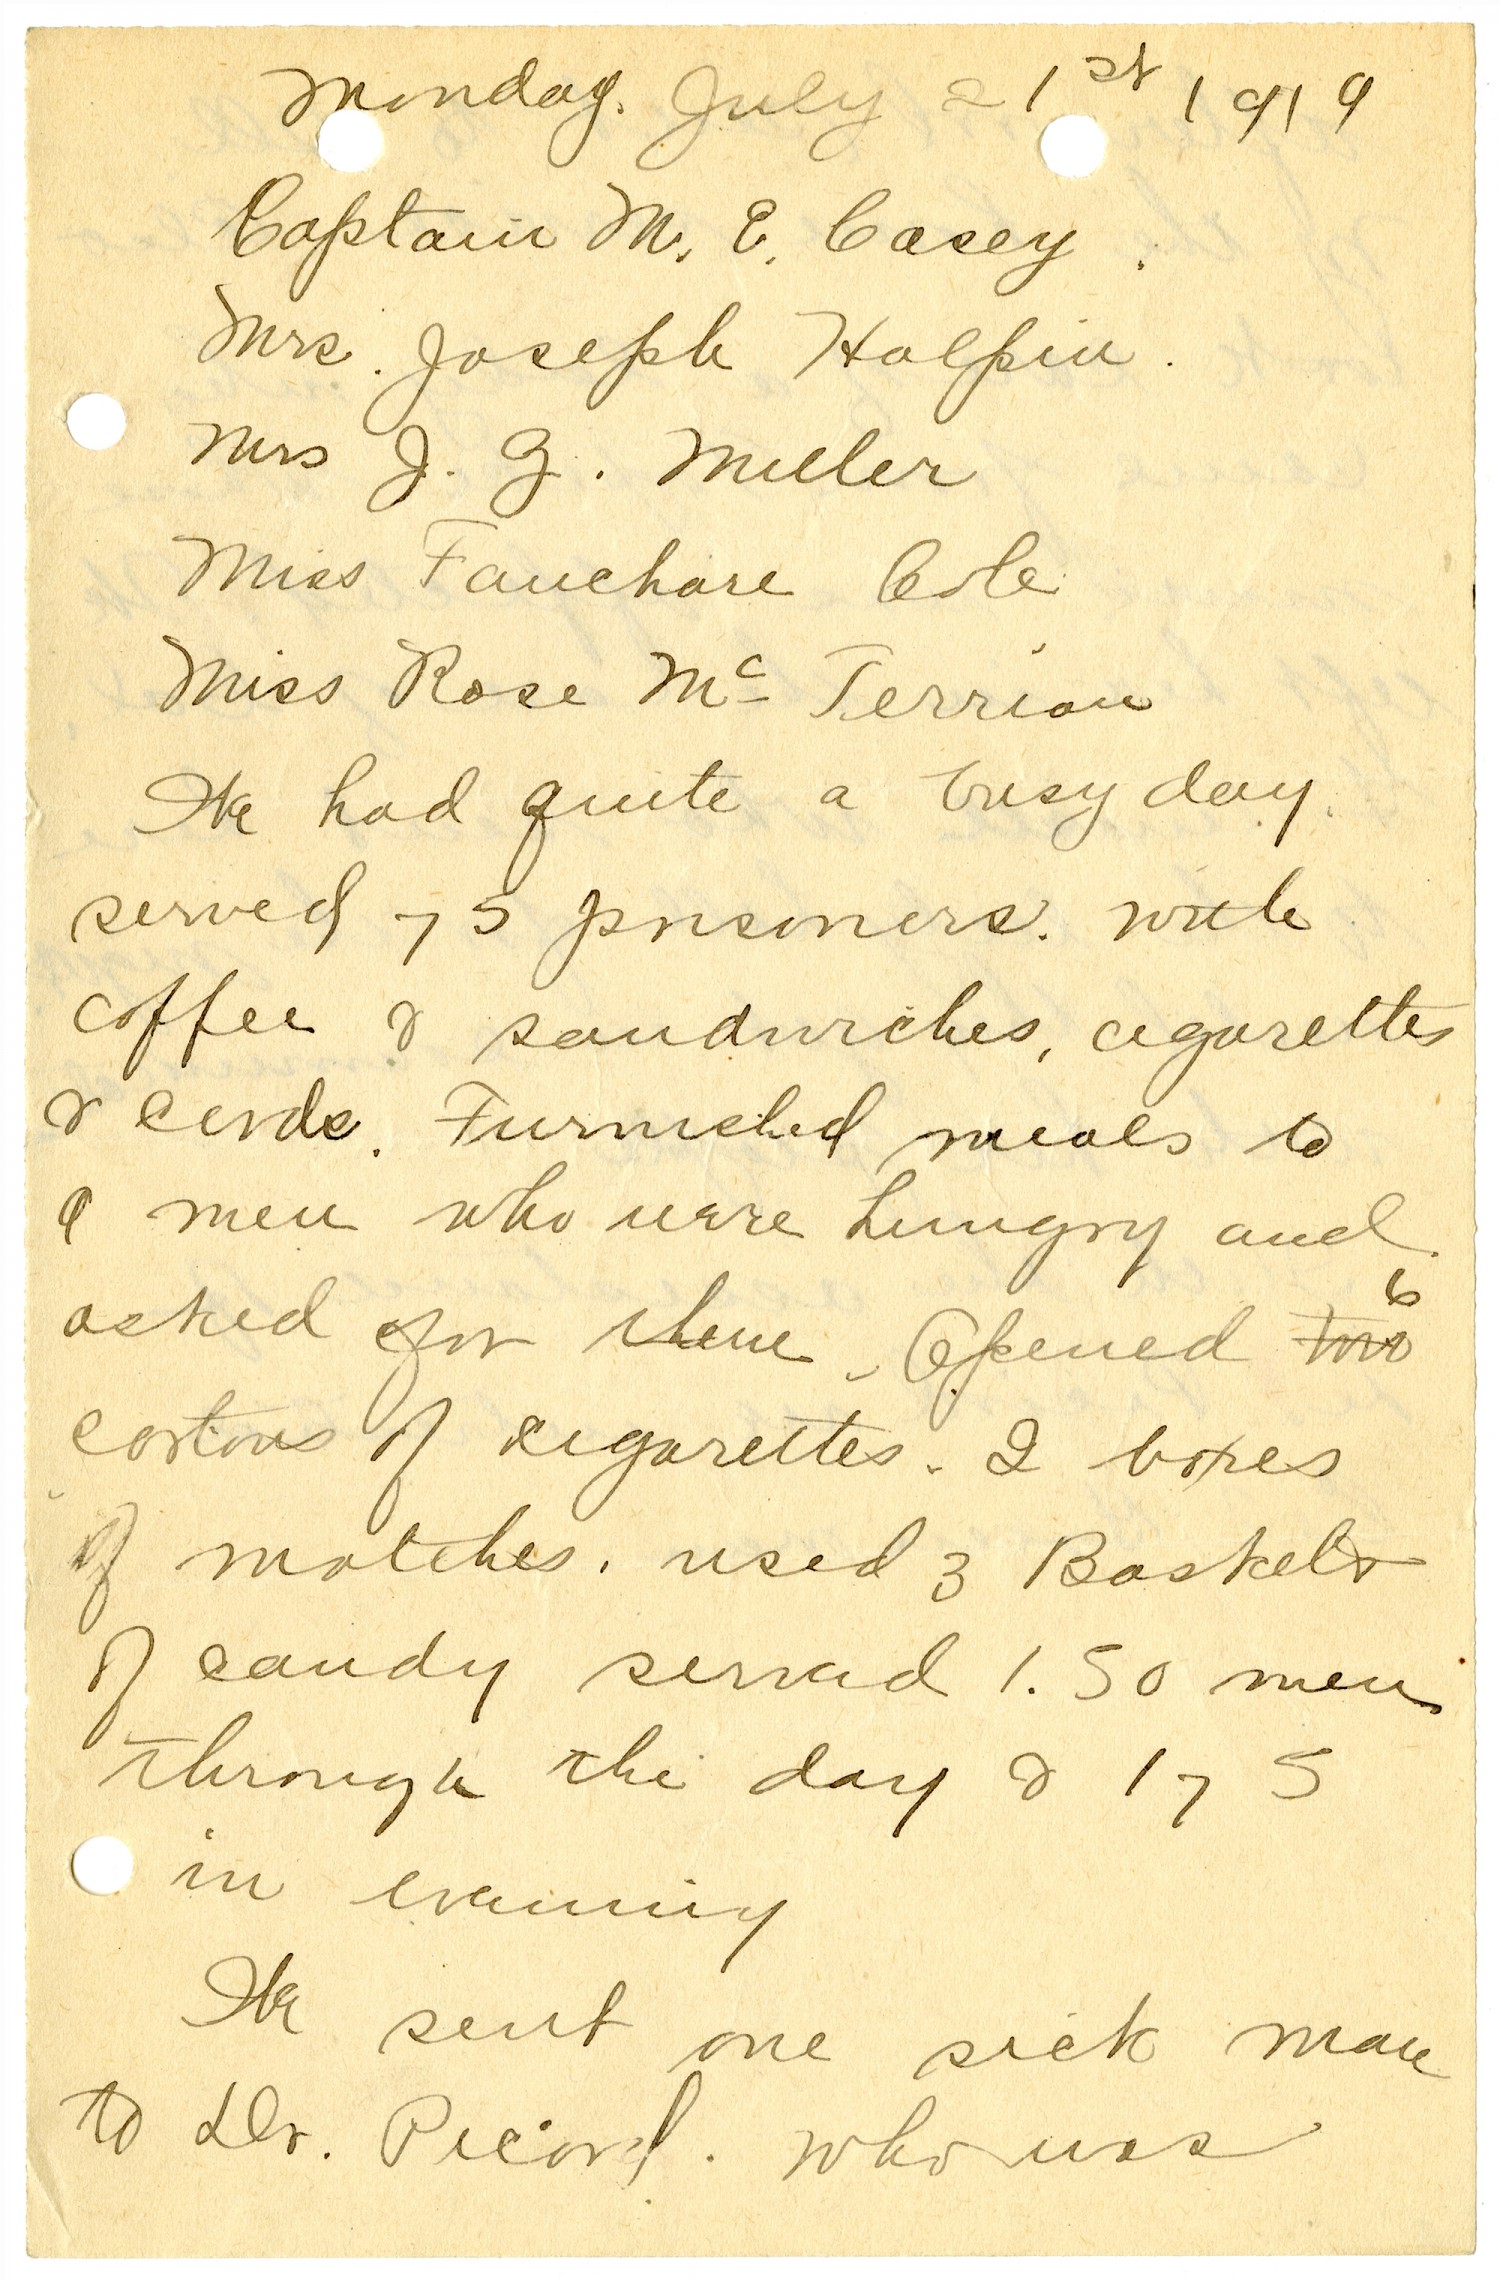 Monday. July 21st 1919
Captain M. E. Casey.
Mrs. Joseph Halpin.
Mrs J. G. Miller
Miss Fauchare Cole
Miss Rose Mc Terrian
We had quite a busy day.
served 75 prisoners. with
coffee & sandwiches, cigarettes
& cards. Furnished meals to
men who were hungry and
asked for them. Opened two 6
cartons of cigarettes. 2 boxes
of matches. used 3 Baskets
of candy served 1.50 men
through the day & 175
in evening
We sent one sick man
to Dr. Picard. who was